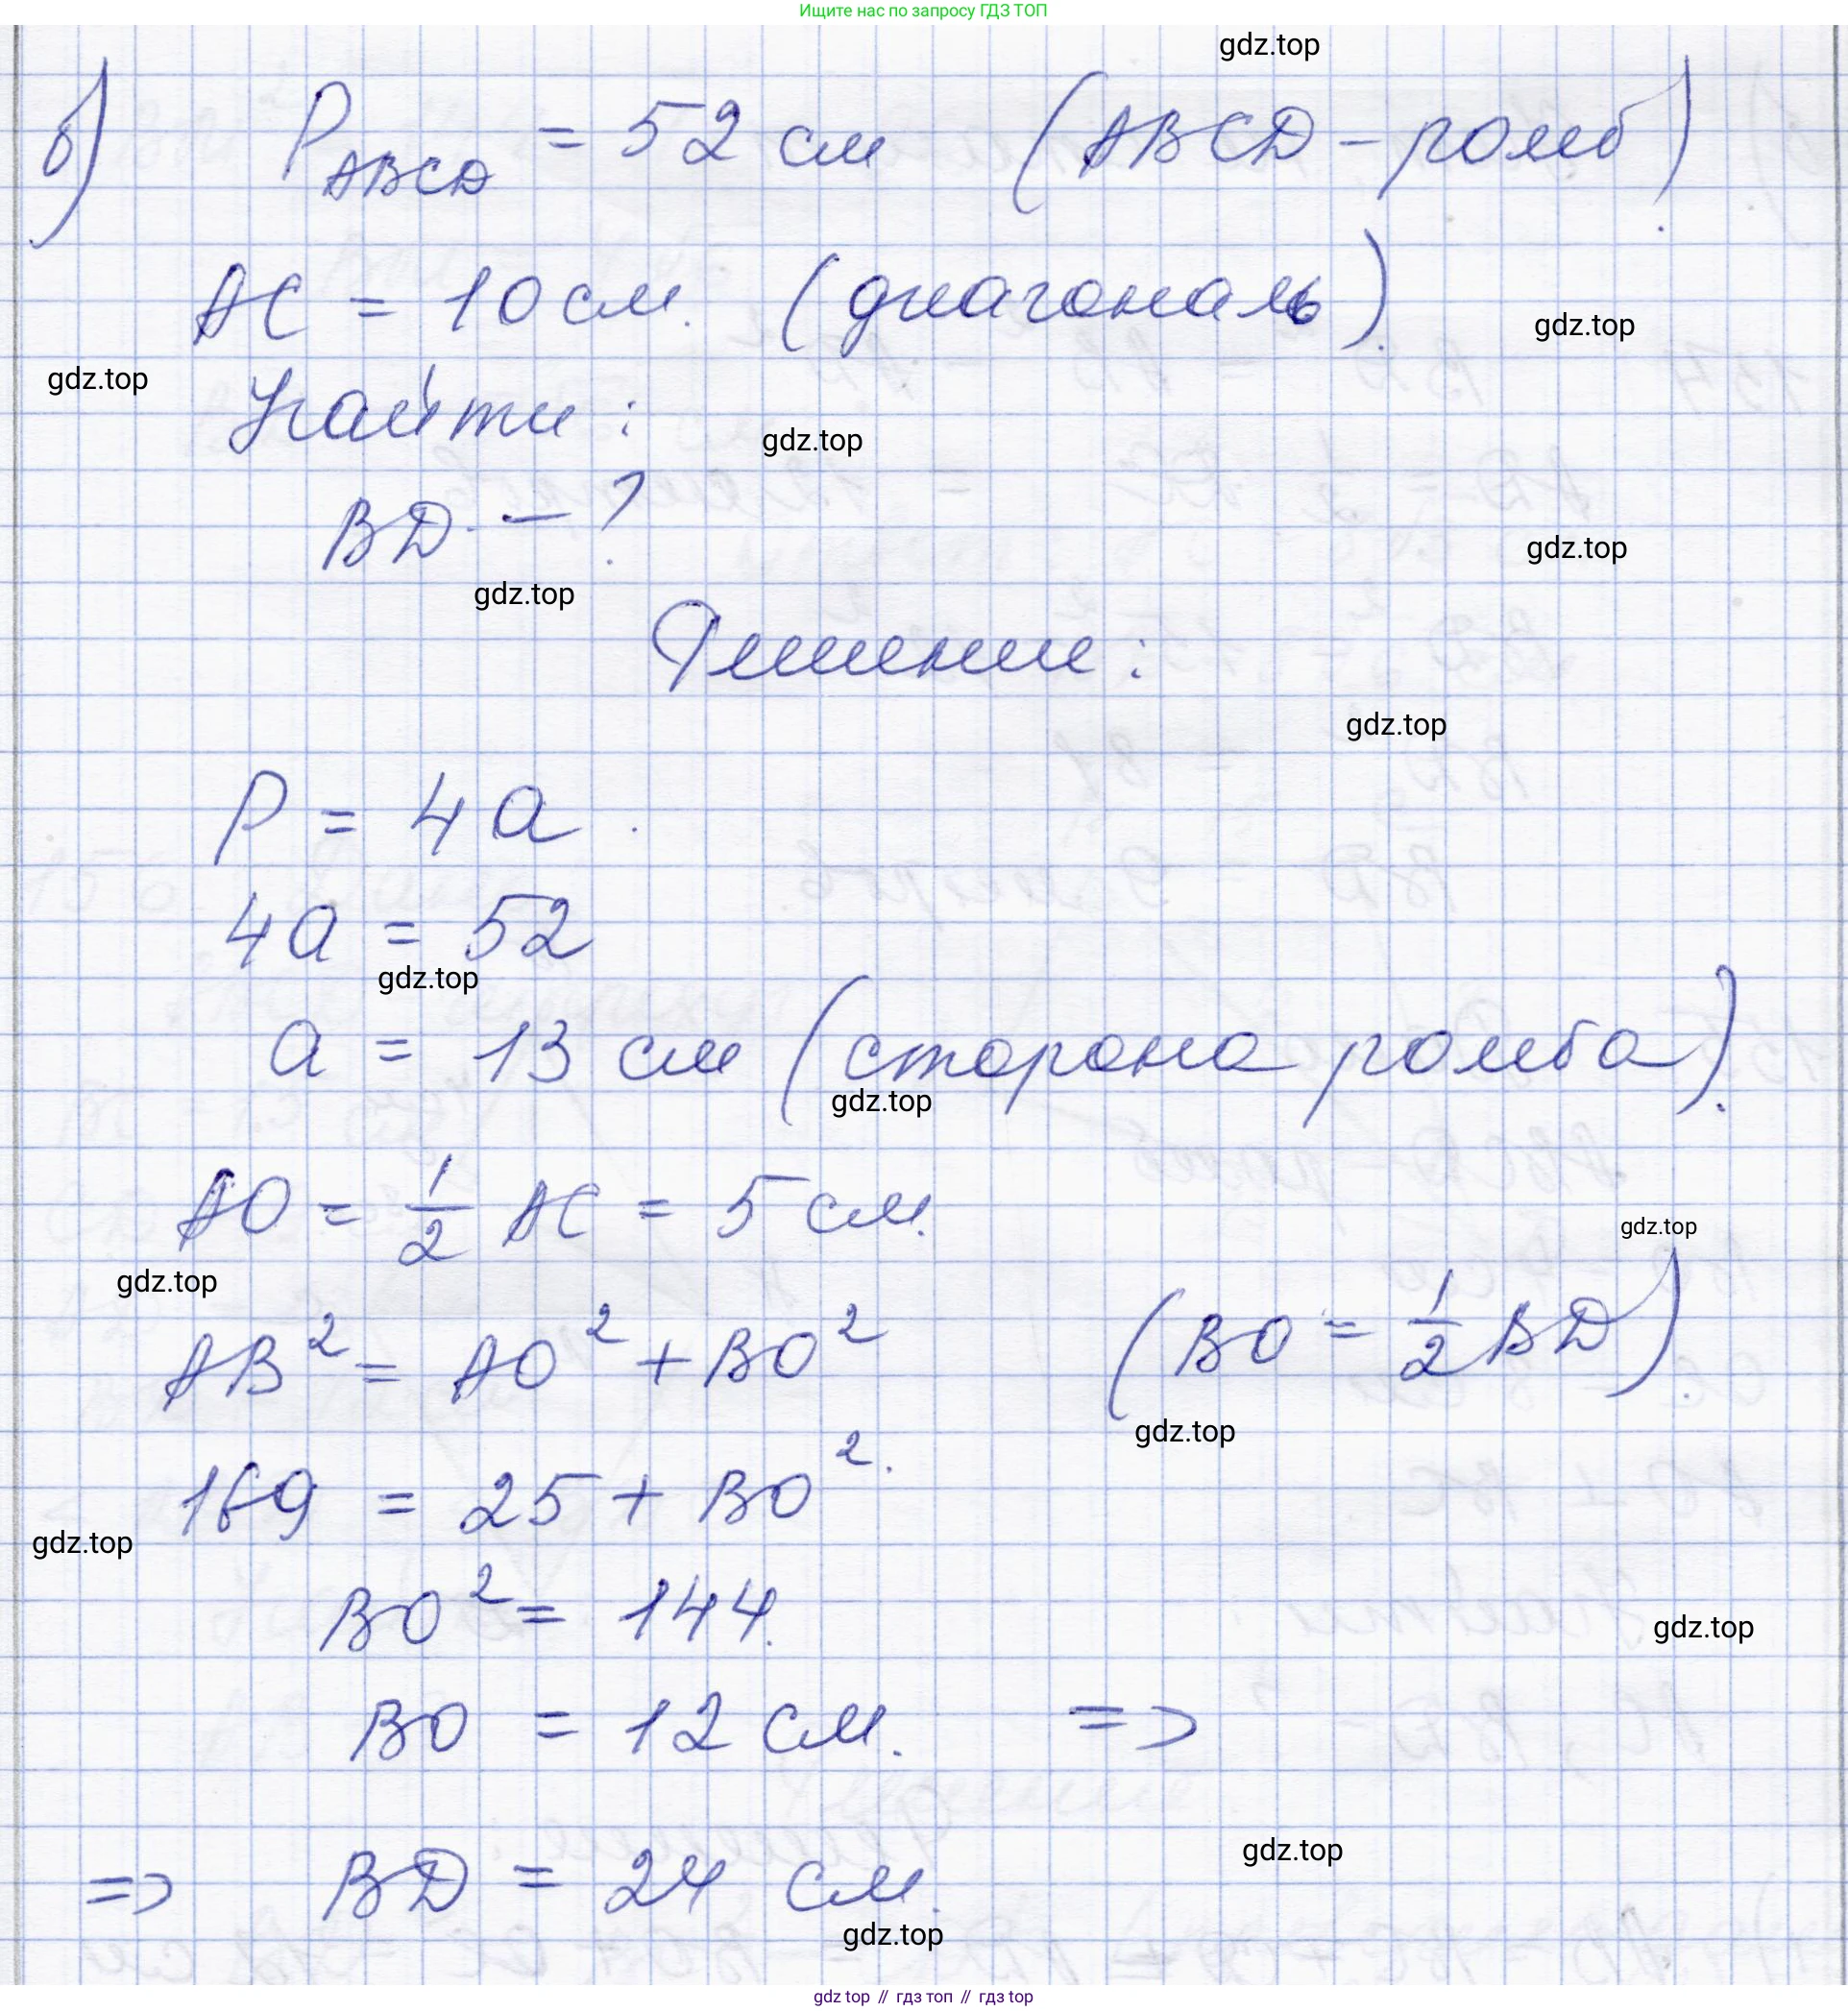 Ищите нас по запросу ГДЗ ТОП
gdz.top
б) P_ABCD = 52 см (ABCD - ромб).
AC = 10 см. (диагональ).
gdz.top
gdz.top
Найти:
gdz.top
BD - ?
gdz.top
gdz.top
Решение:
gdz.top
P = 4a.
4a = 52
gdz.top
a = 13 см (сторона ромба).
gdz.top
AO = 1/2 AC = 5 см.
gdz.top
gdz.top
AB² = AO² + BO² (BO = 1/2 BD).
gdz.top
169 = 25 + BO².
gdz.top
BO² = 144.
gdz.top
BO = 12 см. =>
gdz.top
=> BD = 24 см.
gdz.top
gdz top // гдз топ // гдз top